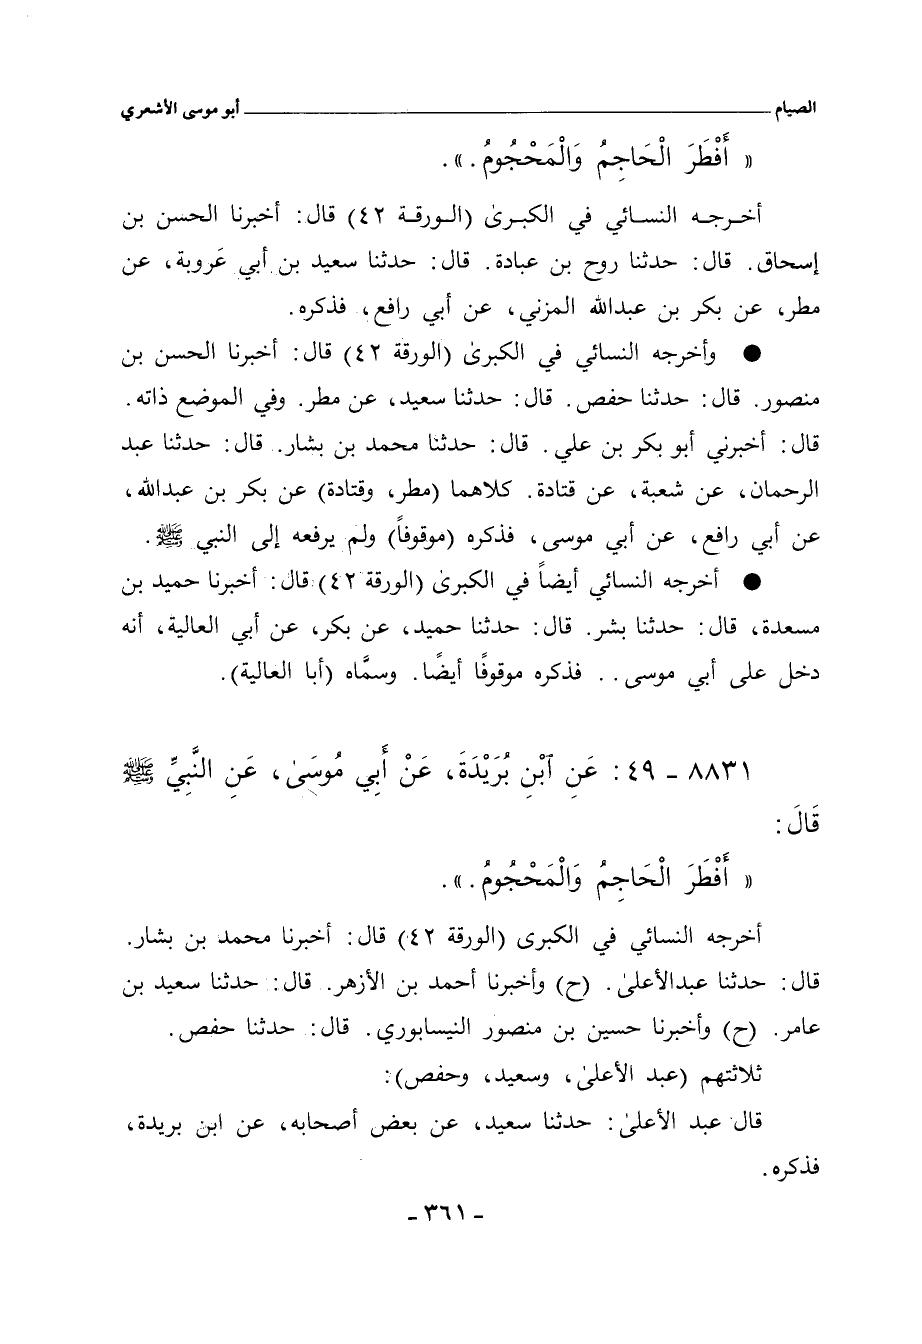 الصيام ــــــــ أبو موسى الأشعري
« أَفْطَرَ الْحَاجِمُ وَالْمَحْجُومُ . » .
أخـرجـه النسـائي في الكبـرىٰ (الـورقـة ٤٢) قال: أخبرنا الحسن بن
إسحاق. قال: حدثنا روح بن عبادة. قال: حدثنا سعيد بن أبي عَروبة، عن
مطر، عن بكر بن عبدالله المزني، عن أبي رافع، فذكره.
● وأخرجه النسائي في الكبرىٰ (الورقة ٤٢) قال: أخبرنا الحسن بن
منصور. قال: حدثنا حفص. قال: حدثنا سعيد، عن مطر. وفي الموضع ذاته.
قال: أخبرني أبو بكر بن علي. قال: حدثنا محمد بن بشار. قال: حدثنا عبد
الرحمان، عن شعبة، عن قتادة. كلاهما (مطر، وقتادة) عن بكر بن عبدالله،
عن أبي رافع، عن أبي موسى، فذكره (موقوفاً) ولم يرفعه إلى النبي ﷺ.
● أخرجه النسائي أيضاً في الكبرىٰ (الورقة ٤٢) قال: أخبرنا حميد بن
مسعدة، قال: حدثنا بشر. قال: حدثنا حميد، عن بكر، عن أبي العالية، أنه
دخل على أبي موسى . . فذكره موقوفًا أيضًا. وسمَّاه (أبا العالية).
٨٨٣١ - ٤٩ : عَنِ ٱبْنِ بُرَيْدَةَ، عَنْ أَبِي مُوسَىٰ، عَنِ النَّبِيِّ ﷺ
قَالَ:
« أَفْطَرَ الْحَاجِمُ وَالْمَحْجُومُ . » .
أخرجه النسائي في الكبرى (الورقة ٤٢) قال: أخبرنا محمد بن بشار.
قال: حدثنا عبدالأعلىٰ. (ح) وأخبرنا أحمد بن الأزهر. قال: حدثنا سعيد بن
عامر. (ح) وأخبرنا حسين بن منصور النيسابوري. قال: حدثنا حفص.
ثلاثتهم (عبد الأعلىٰ، وسعيد، وحفص):
قال عبد الأعلىٰ: حدثنا سعيد، عن بعض أصحابه، عن ابن بريدة،
فذكره.
- ٣٦١ -